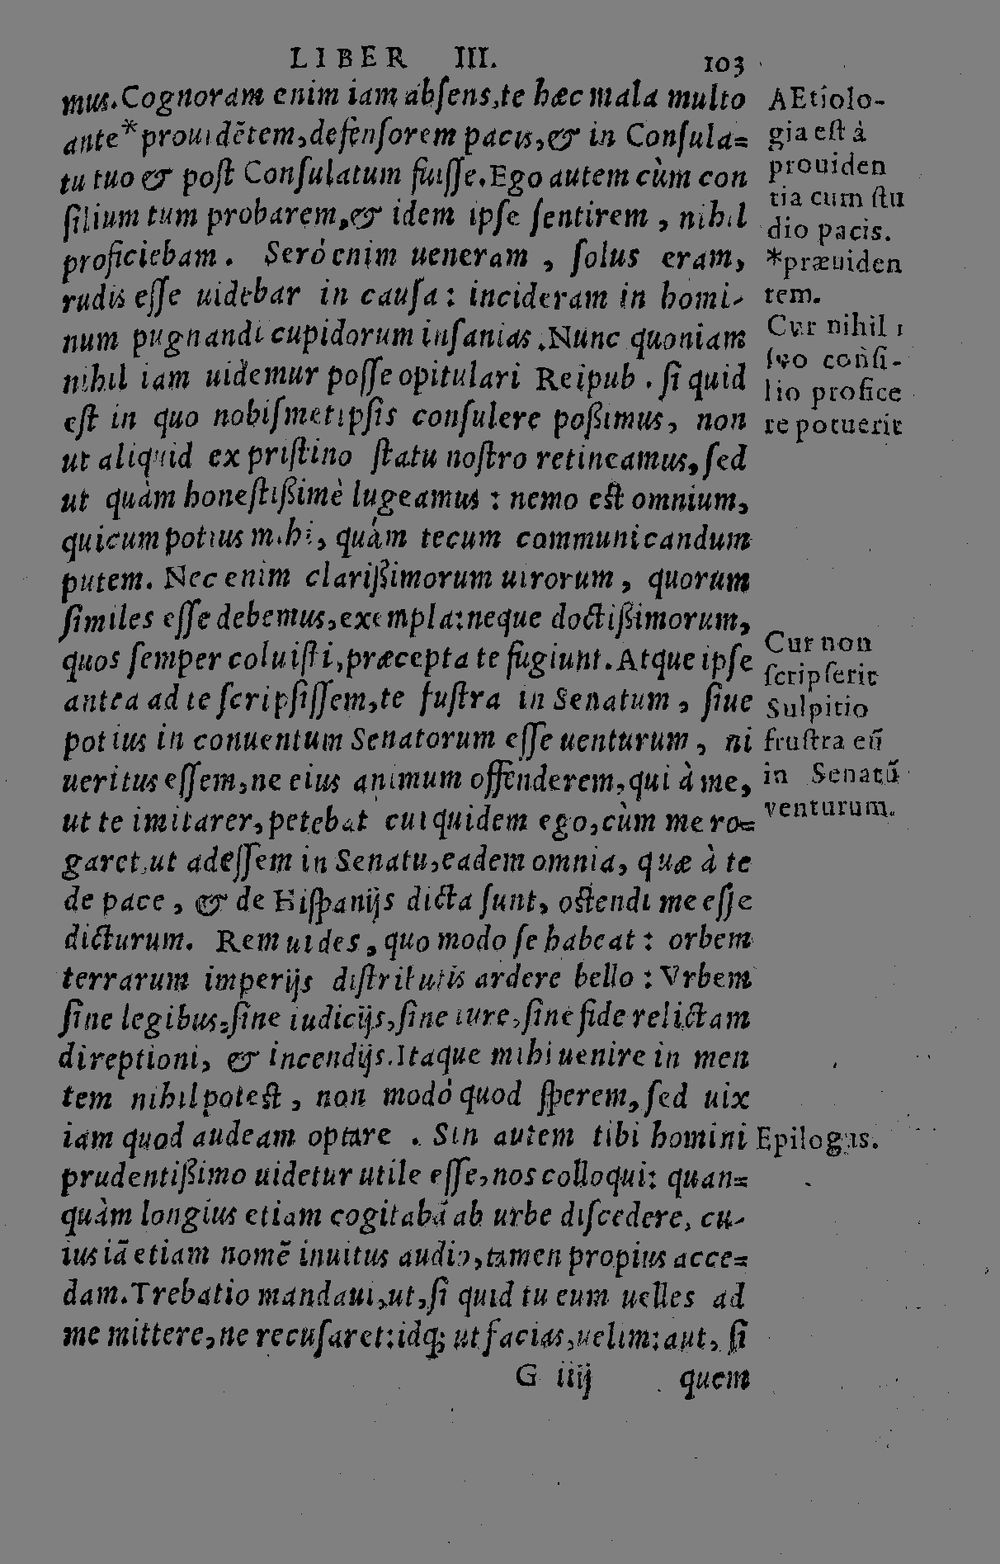 LIBER III. 103
mus. Cognoram enim iam absens, te hæc mala multo
ante* prouidētem, defensorem pacis, & in Consula=
tu tuo & post Consulatum fuisse. Ego autem cùm con
silium tum probarem, & idem ipse sentirem, nihil
proficiebam. Seró enim ueneram, solus eram,
rudis esse uidebar in causa: incideram in homi-
num pugnandi cupidorum insanias. Nunc quoniam
nihil iam uidemur posse opitulari Reipub. si quid
est in quo nobismetipsis consulere poßimus, non
ut aliquid ex pristino statu nostro retineamus, sed
ut quàm honestißimè lugeamus: nemo est omnium,
quicum potius mihi, quám tecum communicandum
putem. Nec enim clarißimorum uirorum, quorum
similes esse debemus, exempla: neque doctißimorum,
quos semper coluisti, præcepta te fugiunt. Atque ipse
antea ad te scripsissem, te fustra in Senatum, siue
potius in conuentum Senatorum esse uenturum, ni
ueritus essem, ne eius animum offenderem, qui à me,
ut te imitarer, petebat cui quidem ego, cùm me ro=
garet, ut adessem in Senatu, eadem omnia, quæ à te
de pace, & de Hispanijs dicta sunt, ostendi me esse
dicturum. Rem uides, quo modo se habeat: orbem
terrarum imperijs distributis ardere bello: Vrbem
sine legibus, sine iudicijs, sine iure, sine fide relictam
direptioni, & incendijs. Itaque mihi uenire in men
tem nihil potest, non modó quod sperem, sed uix
iam quod audeam optare. Sin autem tibi homini
prudentißimo uidetur utile esse, nos colloqui: quan=
quàm longius etiam cogitabā ab urbe discedere, cu-
ius iā etiam nomē inuitus audio, tamen propius acce=
dam. Trebatio mandaui, ut, si quid tu eum uelles ad
me mittere, ne recusaret: idq; ut facias, uelim: aut, si
G iiij quem
AEtiolo-
gia est à
prouiden
tia cum stu
dio pacis.
*præuiden
tem.
Cvr nihil
svo consi-
lio profice
re potuerit
Cur non
scripserit
Sulpitio
frustra eū
in Senatū
venturum.
Epilogus.